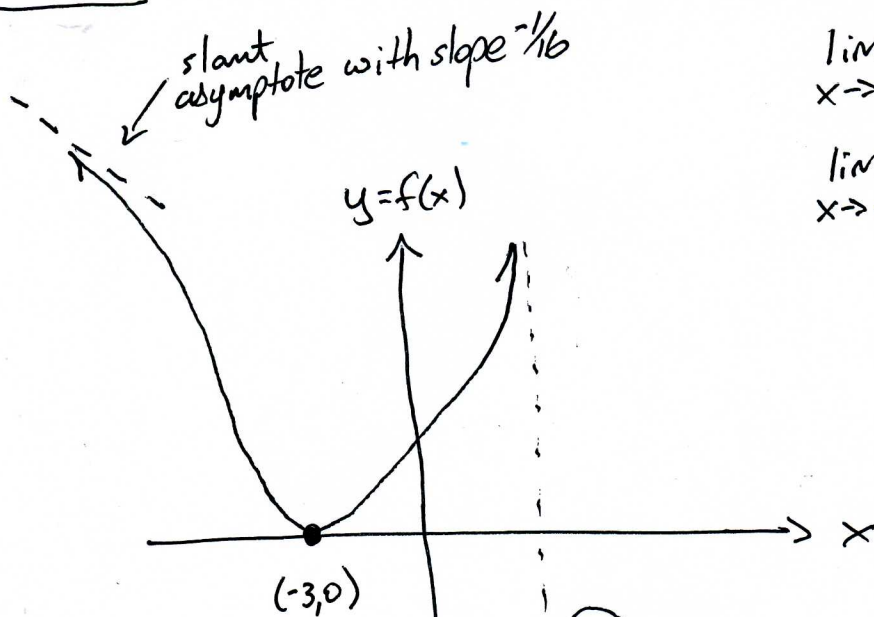 slant
asymptote with slope -1/16
lim
x->
lim
x->
y=f(x)
x
(-3,0)